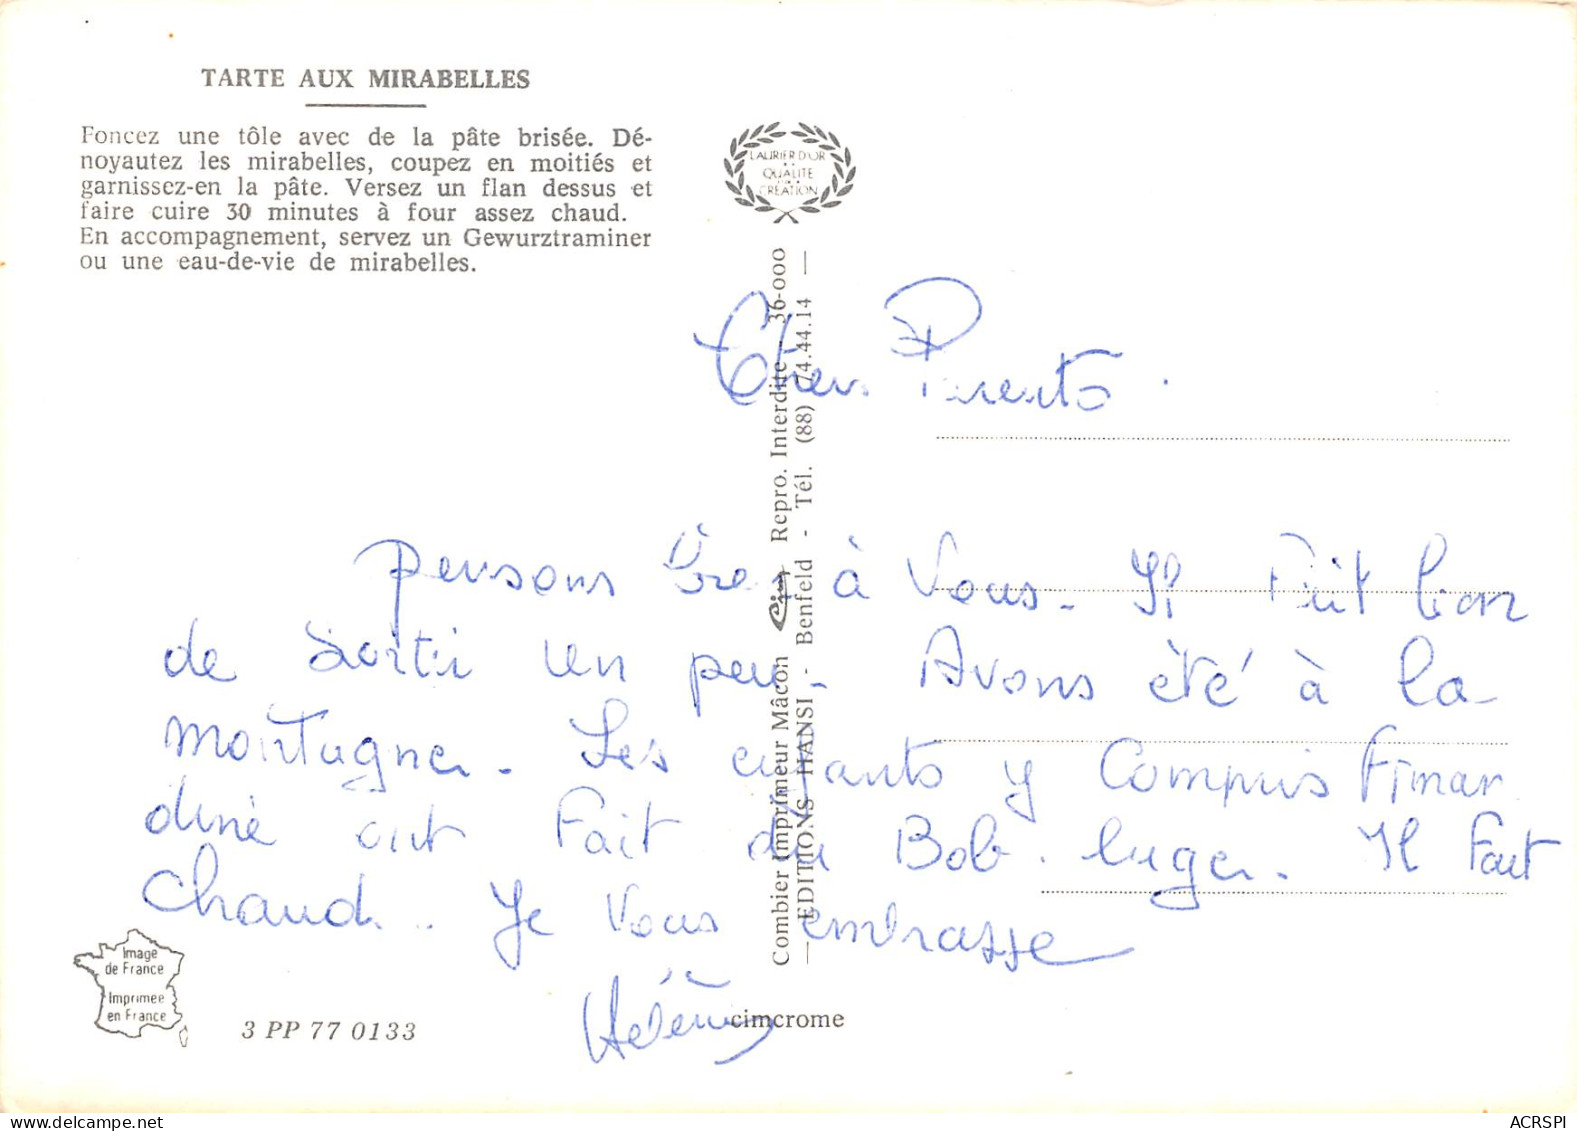 TARTE AUX MIRABELLES
Foncez une tôle avec de la pâte brisée. Dé-
noyautez les mirabelles, coupez en moitiés et
garnissez-en la pâte. Versez un flan dessus et
faire cuire 30 minutes à four assez chaud.
En accompagnement, servez un Gewurztraminer
ou une eau-de-vie de mirabelles.
LAURIER D'OR
QUALITE
CREATION
Combier Imprimeur Mâcon Cim Repro. Interdite - 36-000
— EDITIONS HANSI - Benfeld - Tél. (88) 74.44.14 —
Chers Parents.
pensons à Vous. Il Fait bon
de sortir un peu. Avons été à la
montagne. Les enfants y compris
ont Fait du Bob. luge. Il Fait
Chaud.. Je Vous embrasse
Hélène
Image
de France
Imprimée
en France
3 PP 77 0133
cimcrome
ACRSPI